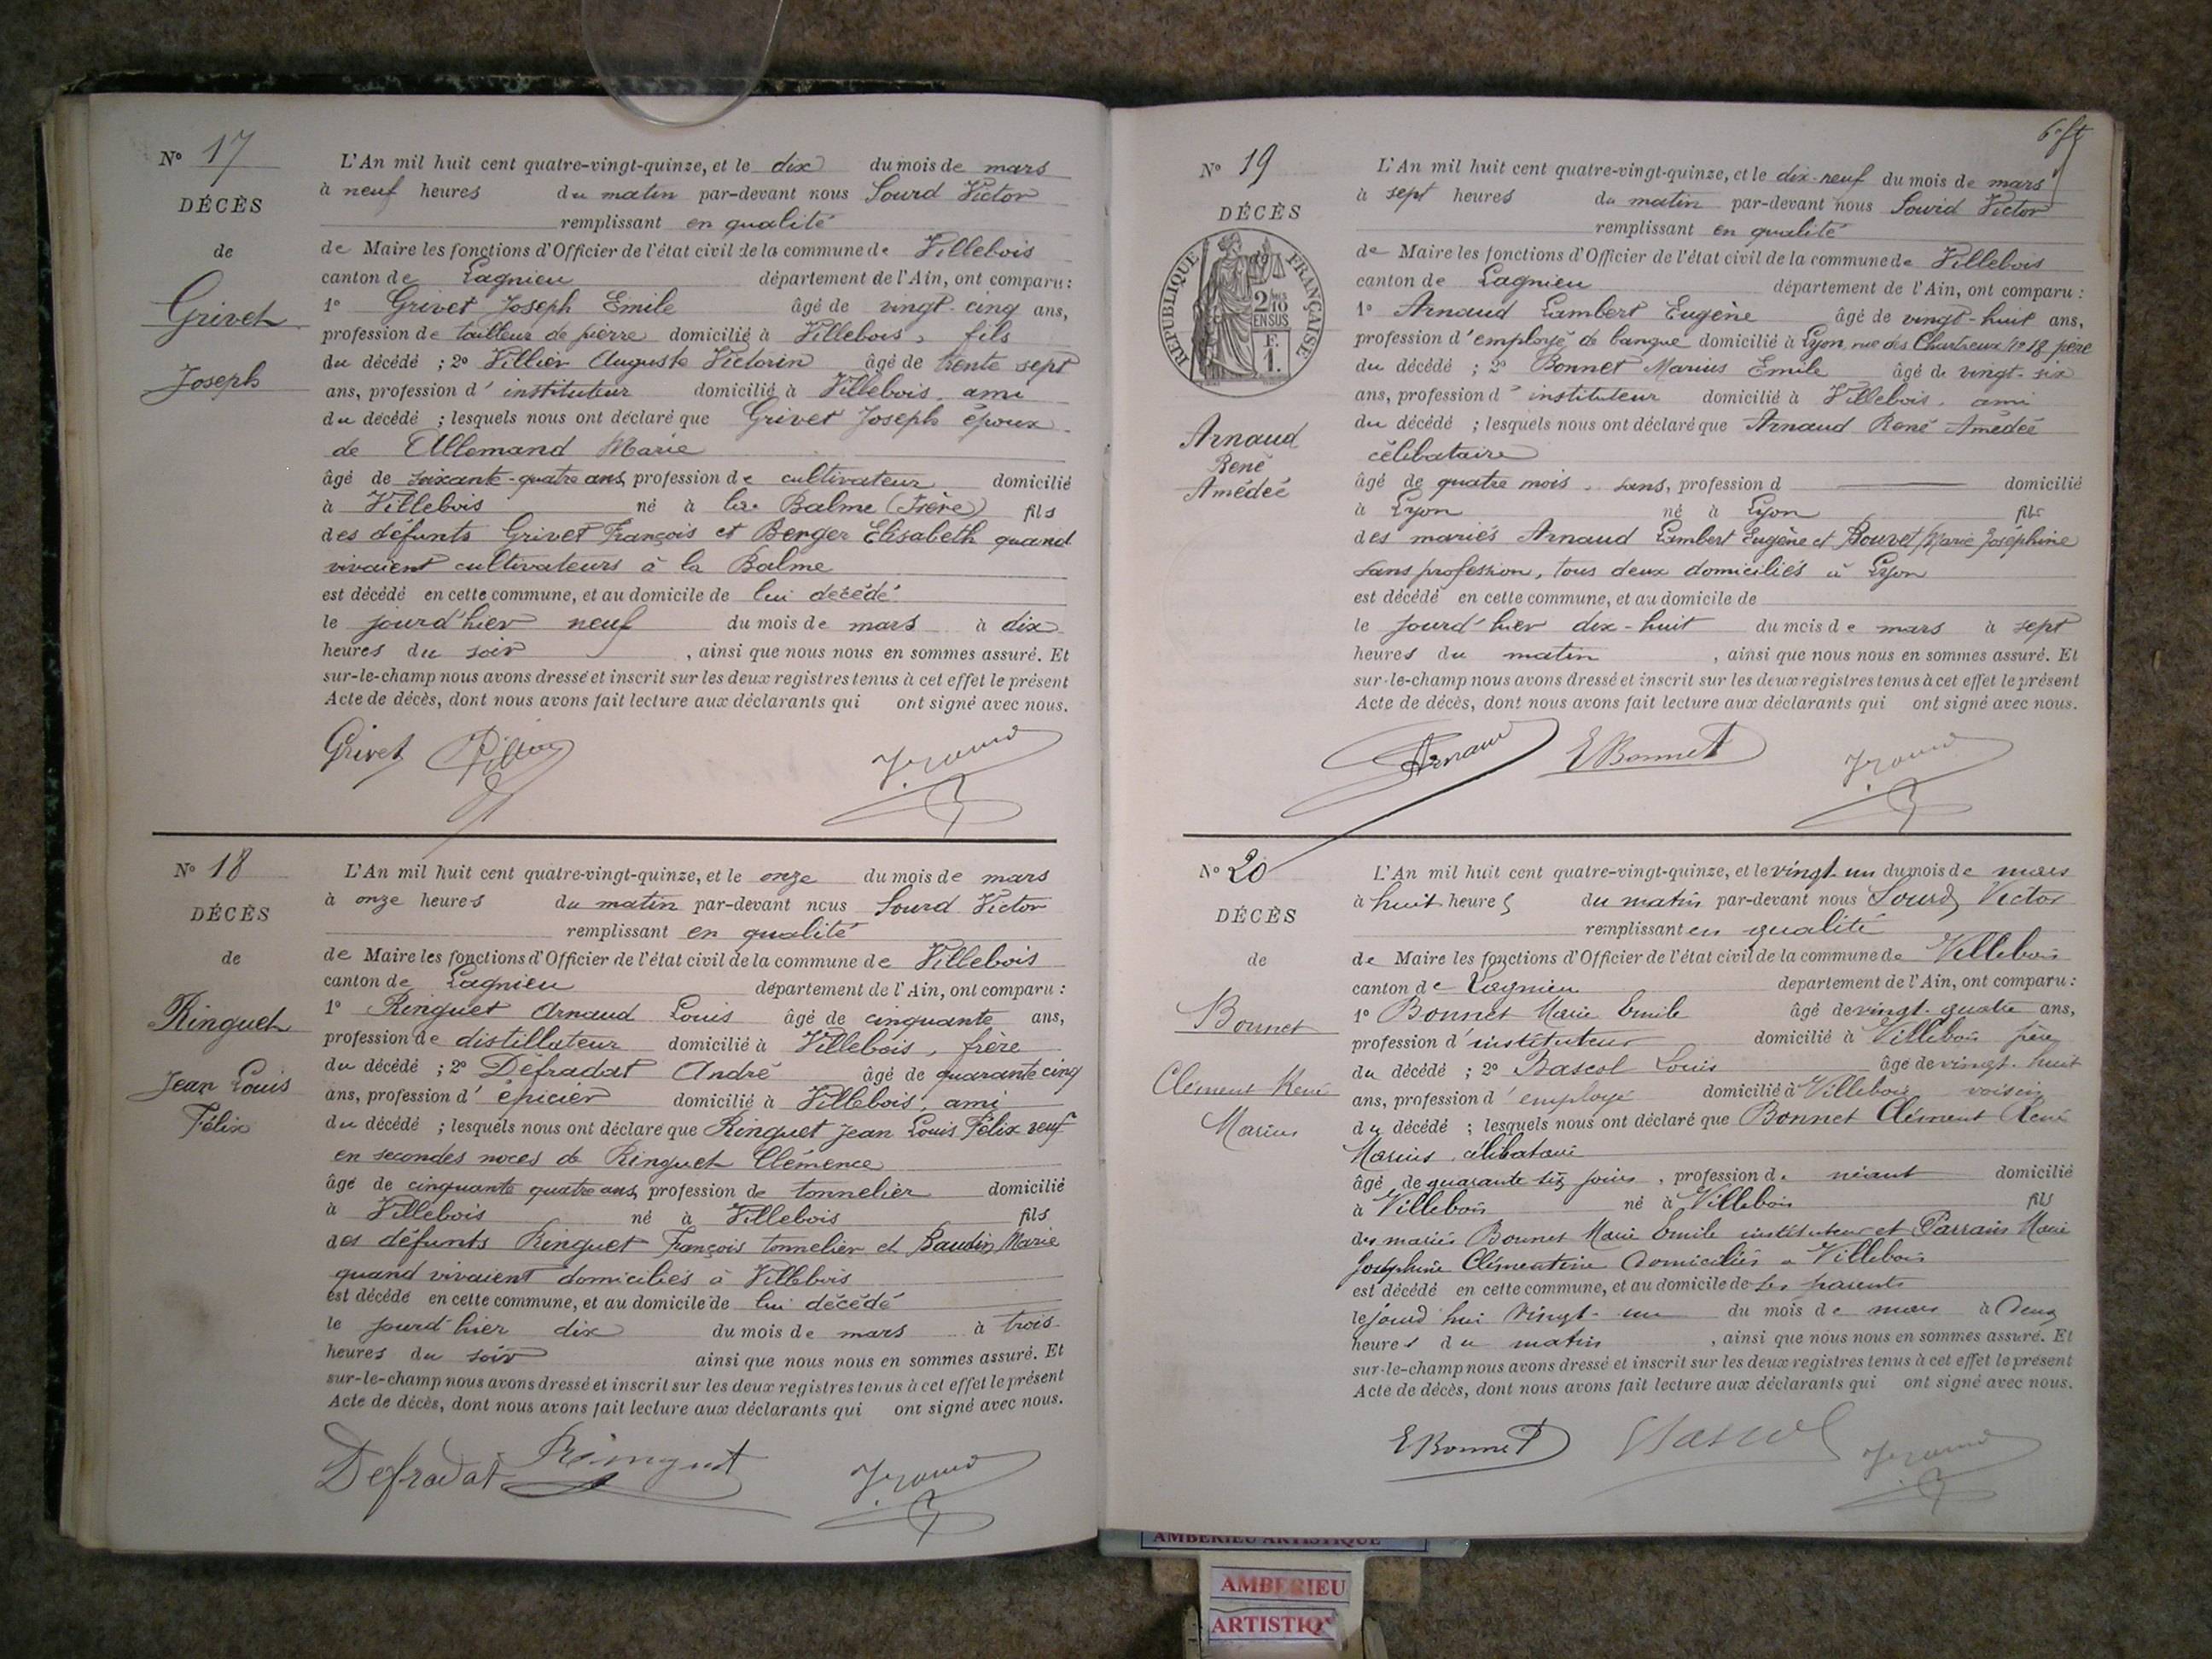 N° 17
DÉCÈS
de
Grivet
Joseph
L'An mil huit cent quatre-vingt-quinze, et le dix du mois de mars
à neuf heures du matin par-devant nous Sourd Victor
remplissant en qualité
de Maire les fonctions d'Officier de l'état civil de la commune de Villebois
canton de Lagnieu département de l'Ain, ont comparu :
1° Grivet Joseph Emile âgé de vingt-cinq ans,
profession de tailleur de pierre domicilié à Villebois, fils
du décédé ; 2° Villier Auguste Victorin âgé de trente sept
ans, profession d'instituteur domicilié à Villebois, ami
du décédé ; lesquels nous ont déclaré que Grivet Joseph époux
de Allemand Marie
âgé de soixante-quatre ans, profession de cultivateur domicilié
à Villebois né à la Balme (Isère) fils
des défunts Grivet François et Berger Elisabeth quand
vivaient cultivateurs à la Balme
est décédé en cette commune, et au domicile de lui décédé
le jourd'hier neuf du mois de mars à dix
heures du soir , ainsi que nous nous en sommes assuré. Et
sur-le-champ nous avons dressé et inscrit sur les deux registres tenus à cet effet le présent
Acte de décès, dont nous avons fait lecture aux déclarants qui ont signé avec nous.
Grivet
N° 18
DÉCÈS
de
Ringuet
Jean Louis
Félix
L'An mil huit cent quatre-vingt-quinze, et le onze du mois de mars
à onze heures du matin par-devant nous Sourd Victor
remplissant en qualité
de Maire les fonctions d'Officier de l'état civil de la commune de Villebois
canton de Lagnieu département de l'Ain, ont comparu :
1° Ringuet Arnaud Louis âgé de cinquante ans,
profession de distillateur domicilié à Villebois, frère
du décédé ; 2° Défradat André âgé de quarante cinq
ans, profession d'épicier domicilié à Villebois, ami
du décédé ; lesquels nous ont déclaré que Ringuet Jean Louis Félix veuf
en secondes noces de Ringuet Clémence
âgé de cinquante quatre ans, profession de tonnelier domicilié
à Villebois né à Villebois fils
des défunts Ringuet François tonnelier et Baudin Marie
quand vivaient domiciliés à Villebois
est décédé en cette commune, et au domicile de lui décédé
le jourd'hier dix du mois de mars à trois
heures du soir ainsi que nous nous en sommes assuré. Et
sur-le-champ nous avons dressé et inscrit sur les deux registres tenus à cet effet le présent
Acte de décès, dont nous avons fait lecture aux déclarants qui ont signé avec nous.
Defradat Ringuet
N° 19
DÉCÈS
RÉPUBLIQUE FRANÇAISE
2/10
EN SUS
F.
1.
Arnaud
René
Amédée
L'An mil huit cent quatre-vingt-quinze, et le dix-neuf du mois de mars
à sept heures du matin par-devant nous Sourd Victor
remplissant en qualité
de Maire les fonctions d'Officier de l'état civil de la commune de Villebois
canton de Lagnieu département de l'Ain, ont comparu :
1° Arnaud Lambert Eugène âgé de vingt-huit ans,
profession d'employé de banque domicilié à Lyon, rue des Chartreux N° 18 père
du décédé ; 2° Bonnet Marius Emile âgé de vingt-six
ans, profession d'instituteur domicilié à Villebois, ami
du décédé ; lesquels nous ont déclaré que Arnaud René Amédée
célibataire
âgé de quatre mois, sans, profession d domicilié
à Lyon né à Lyon fils
des mariés Arnaud Lambert Eugène et Bouvet Marie Joséphine
sans profession, tous deux domiciliés à Lyon
est décédé en cette commune, et au domicile de
le jourd'hier dix-huit du mois de mars à sept
heures du matin , ainsi que nous nous en sommes assuré. Et
sur-le-champ nous avons dressé et inscrit sur les deux registres tenus à cet effet le présent
Acte de décès, dont nous avons fait lecture aux déclarants qui ont signé avec nous.
Arnaud EBonnet
N° 20
DÉCÈS
de
Bonnet
Clément René
Marius
L'An mil huit cent quatre-vingt-quinze, et le vingt-un du mois de mars
à huit heures du matin par-devant nous Sourd Victor
remplissant en qualité
de Maire les fonctions d'Officier de l'état civil de la commune de Villebois
canton de Lagnieu département de l'Ain, ont comparu :
1° Bonnet Marie Emile âgé de vingt-quatre ans,
profession d'instituteur domicilié à Villebois père
du décédé ; 2° Bascol Louis âgé de vingt-huit
ans, profession d'employé domicilié à Villebois voisin
du décédé ; lesquels nous ont déclaré que Bonnet Clément René
Marius, célibataire
âgé de quarante six jours, profession de néant domicilié
à Villebois né à Villebois fils
des mariés Bonnet Marie Emile instituteur et Parrain Marie
Joséphine Clémentine domiciliés à Villebois
est décédé en cette commune, et au domicile de ses parents
le jourd'hui vingt-un du mois de mars à deux
heures du matin , ainsi que nous nous en sommes assuré. Et
sur-le-champ nous avons dressé et inscrit sur les deux registres tenus à cet effet le présent
Acte de décès, dont nous avons fait lecture aux déclarants qui ont signé avec nous.
EBonnet Bascol
AMBERIEU ARTISTIQUE
AMBERIEU
ARTISTIQ